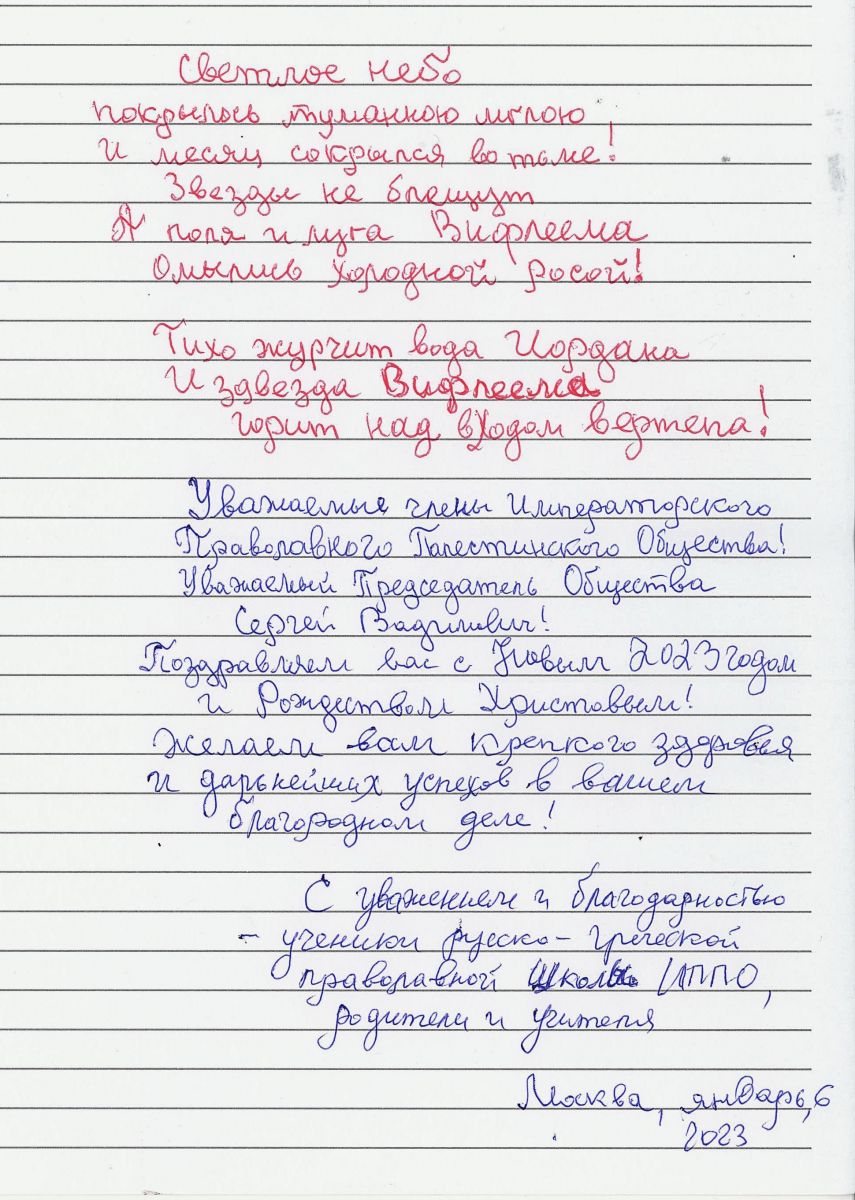 Светлое небо
покрылось туманною мглою
И месяц сокрылся во тьме!
Звезды не блещут
А поля и луга Вифлеема
Омылись холодной росой!
Тихо журчит вода Иордана
И здвезда Вифлеема
горит над входом вертепа!
Уважаемые члены Императорского
Праволавного Палестинского Общества!
Уважаемый Председатель Общества
Сергей Вадимович!
Поздравляем вас с Новым 2023 годом
и Рождеством Христовым!
Желаем вам крепкого здоровья
и дальнейших успехов в вашем
благородном деле!
С уважением и благодарностью
- ученики русско-греческой
праволавной школы ИППО,
родители и учителя
Москва, январь, 6
2023